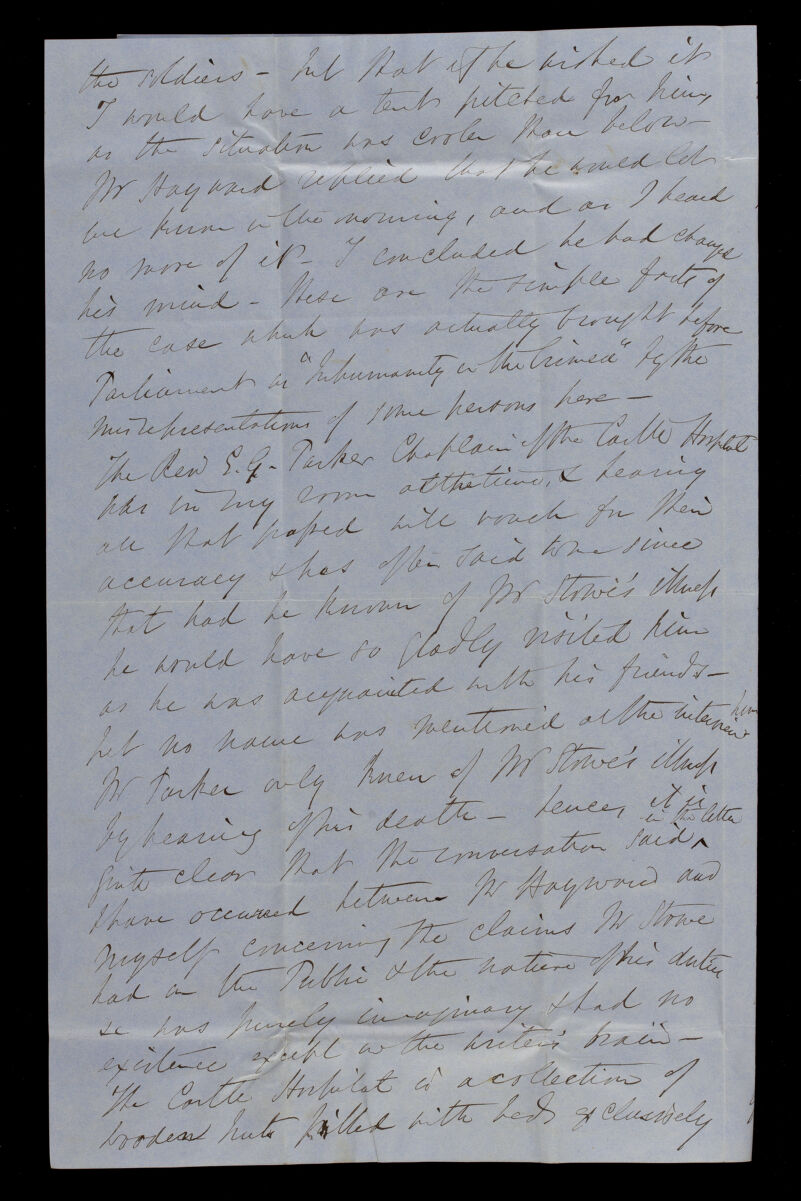 the soldiers - but that if he wished it
I would have a tent pitched for him,
as the situation was cooler than below -
Mr Hayward replied that he would let
me know in the morning, and as I heard
no more of it - I concluded he had changed
his mind - these are the simple facts of
the case which was actually brought before
Parliament as "Inhumanity in the Crimea" by the
misrepresentations of some persons here -
The Revd E. G. Parker Chaplain of the Castle Hospital
was in my room at the time, & hearing
all that passed will vouch for their
accuracy & has often said to me since
that had he known of Mr Stowe's illness
he would have so gladly visited him
as he was acquainted with his friends -
but no name was mentioned at the interview
Mr Parker only knew of Mr Stowe's illness
by hearing of his death - hence, it is
in the letter
quite clear that the conversation said ^
to have occurred between Mr Hayward and
myself concerning the claims Mr Stowe
had on the Public & the nature of his duties
&c was purely imaginary & had no
existence except in the writer's brain -
The Castle Hospital is a collection of
wooden huts filled with beds exclusively